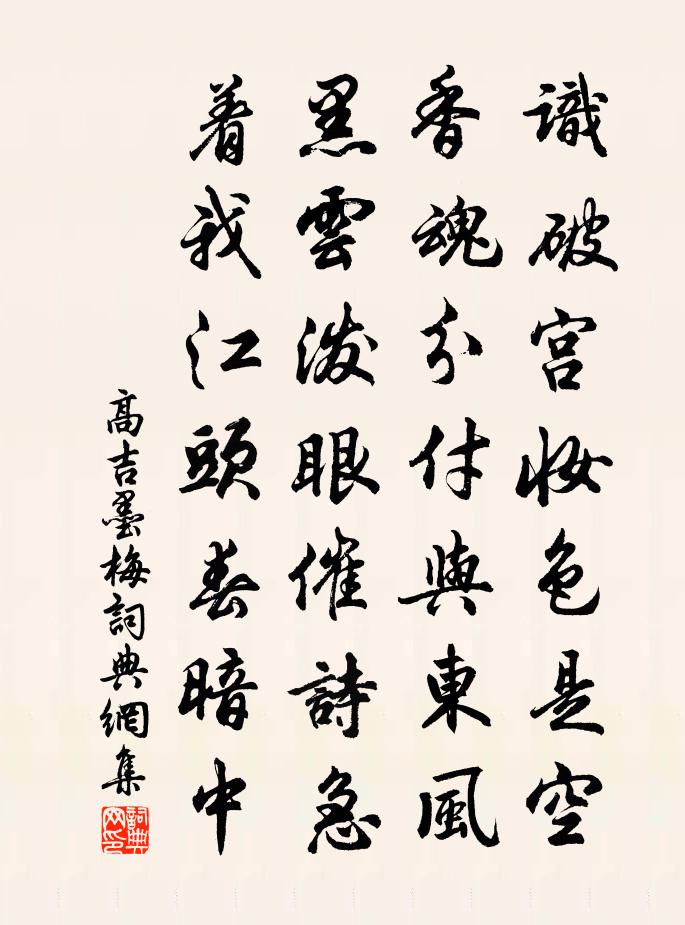 識破宫妝色是空
香魂分付與東風
黑雲潑眼催詩急
着我江頭春暗中
高吉墨梅詞典網集
詞典網印